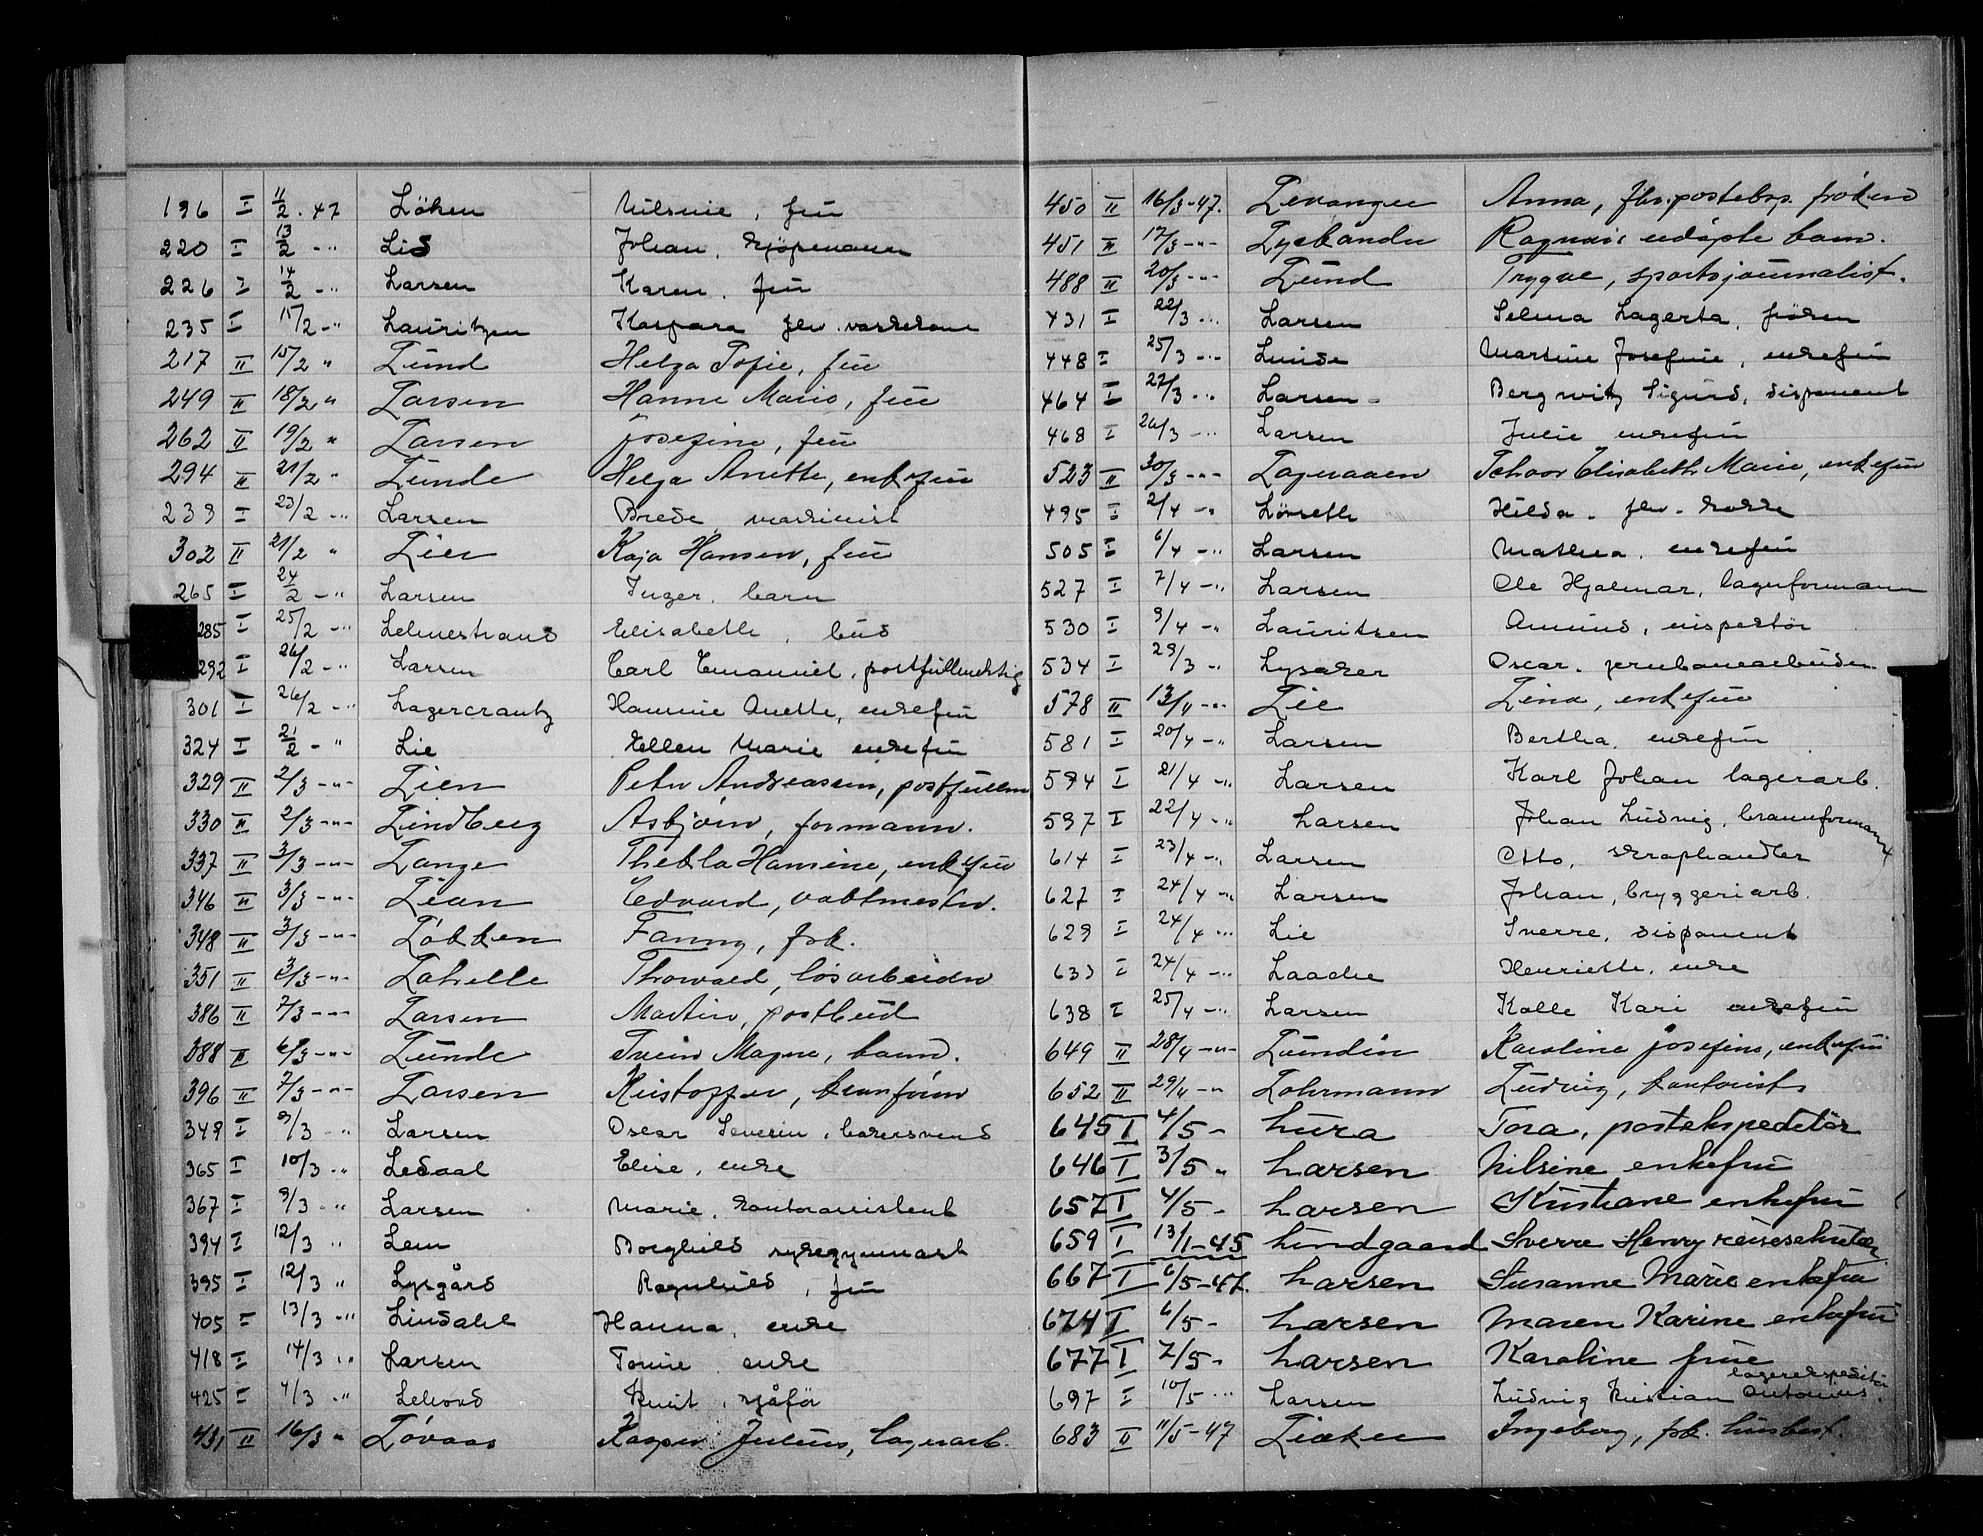 196 I 11/2 . 47 Löken Nilsine, fru
220 I 13/2 - " Lid Johan, kjøpmann
226 I 14/2 - " Larsen Karen, fru
235 I 15/2 - " Lauritzen Kaspara fhv. vaskekone
217 II 15/2 " Lund Helga Sofie, fru
249 II 18/2 " Larsen Hanne Marie, fru
262 II 19/2 " Larsen Josefine, fru
294 II 21/2 " Lunde Helga Anette, enkefru
239 I 23/2 - " Larsen Brede, maskinist
302 II 21/2 " Lier Kaja Hansen, fru
265 I 24/2 - " Larsen Inger, barn
285 I 25/2 - " Elisabeth, bud
292 I 26/2 - " Larsen Carl Emanuel, postfullmektig
301 I 26/2 - " Lagercrantz Hannie Anette, enkefru
324 I 21/2 - " Lie Ellen Marie enkefru
329 II 2/3 - " - Lien Peter Andreassen, postfullm
330 II 2/3 - " - Lindberg Asbjørn, formann.
337 II 3/3 - " - Lange Thekla Hansine, enkefru
346 II 3/3 - " - Lian Edvard, vaktmester.
348 II 3/3 - " - Løkken Fanny, frk.
351 II 3/3 - " - Labelle Thorvald, løsarbeider
386 II 7/3 - " - Larsen Martin, postbud
388 II 6/3 - " - Lunde Svein Magne, barn.
396 II 7/3 - " - Larsen Kristoffer, kranfører
349 I 9/3 - " Larsen Oscar Severin, bakersvend
365 I 10/3 - " Ledaal Elise, enke
367 I 9/3 - " Larsen Marie, kontorassistent
394 I 12/3 " Lem Borghild sykegymnast
395 I 12/3 " Lysgård Ragnhild, fru
405 I 13/3 - " Lindahl Hanna, enke
418 I 14/3 - " Larsen Tomine enke
425 I 4/3 - " Knut, sjåfør
431 II 16/3 " Løvaas Kasper Julius, lagerarb.
450 II 16/3 - 47. Levanger Anna, fhv. posteksp. frøken
451 II 17/3 - " - udøpte barn.
488 II 20/3 - " - Lund Trygve, sportsjournalist.
431 I 22/3 - " Larsen Selma Lagerta, frøken
448 I 25/3 - " Lunde Martine Josefine, enkefru
464 I 22/3 - " Larsen - Bergwitz Sigurd, disponent
468 I 26/3 - " Larsen Julie enkefru
523 II 30/3 - " - Lageraaen Elisabeth Marie, enkefru
495 I 2/4 - " Lörseth Hilda - fhv. kokke
505 I 6/4 - " Larsen Mathea, enkefru
527 I 7/4 - " Larsen Ole Hjalmar, lagerformann
530 I 9/4 - " Lauritsen Amund, inspektør
534 I 29/3 - " Lysaker Oscar, jernbanearbeider
578 II 13/4 - " - Lie Lina, enkefru
581 I 20/4 - " Larsen Bertha, enkefru
594 I 21/4 - " Larsen Karl Johan lagerarb.
597 I 22/4 - " Larsen Johan Ludvig, brannformann
614 I 23/4 - " Larsen Otto, skraphandler
627 I 24/4 - " Larsen Johan, bryggeriarb.
629 I 24/4 - " Lie Sverre, disponent
633 I 24/4 - " Laache Henriette, enke
638 I 25/4 - " Larsen Kalle Kari enkefru
649 II 28/4 - " - Lundin Karoline Josefine, enkefru
652 II 29/4 - " Lohrmann Ludvig, kontorist
645 I 4/5 - Lura Tora, postekspeditör
646 I 3/5 " Larsen Nilsine enkefru
657 I 4/5 - Larsen Kristiane enkefru
659 I 13/1 - 45 Lundgaard Sverre Henry reisesekretær
667 I 6/5 - 47. Larsen Susanne Marie enkefru
674 I 6/5 - Larsen Maren Karine enkefru
677 I 7/5 - Larsen Karoline frue
697 I 10/5 - " Larsen Ludvig Kristian Antonius lagerekspeditør
683 II 11/5 - 47 Ingeborg, frk. husbest.